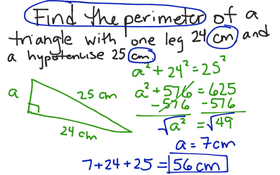 Find the perimeter of a
triangle with one leg 24 cm and
a hypotenuse 25 cm.
a² + 24² = 25²
a 25 cm
a² + 576 = 625
-576 -576
24 cm
√a² = √49
a = 7cm
7+24+25 = 56 cm